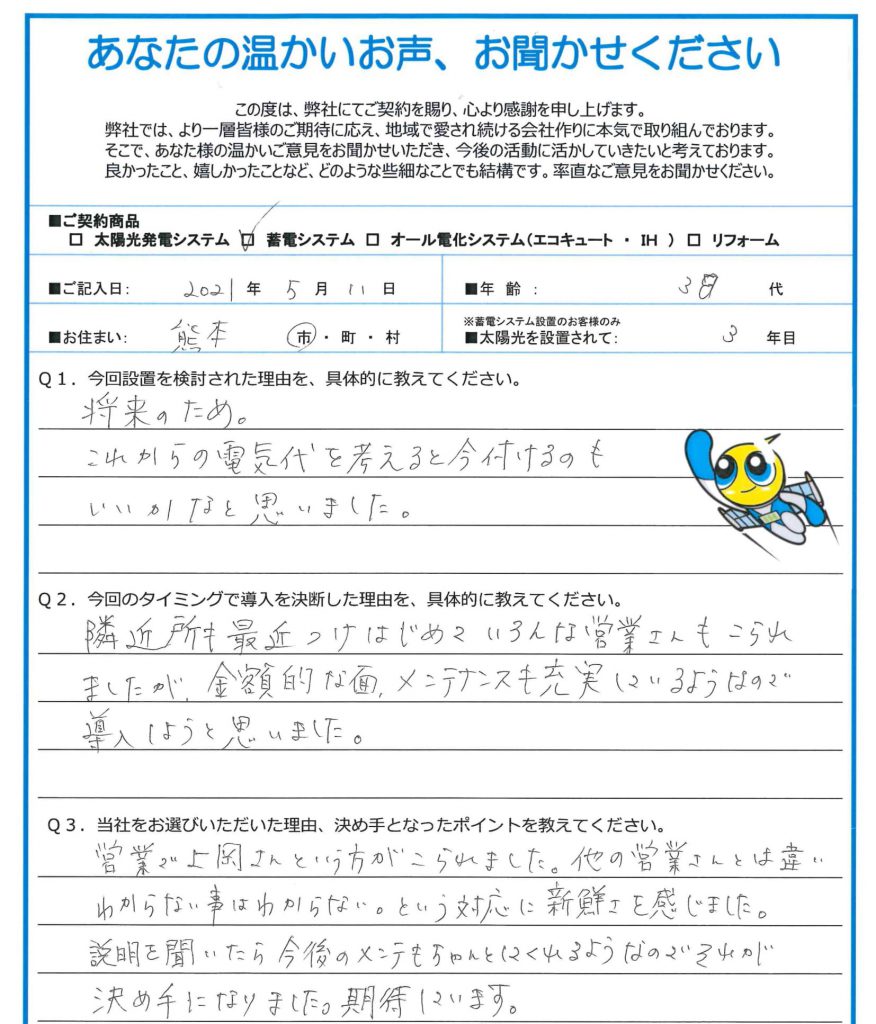 あなたの温かいお声、お聞かせください
この度は、弊社にてご契約を賜り、心より感謝を申し上げます。
弊社では、より一層皆様のご期待に応え、地域で愛され続ける会社作りに本気で取り組んでおります。
そこで、あなた様の温かいご意見をお聞かせいただき、今後の活動に活かしていきたいと考えております。
良かったこと、嬉しかったことなど、どのような些細なことでも結構です。率直なご意見をお聞かせください。
■ご契約商品
□ 太陽光発電システム ☑ 蓄電システム □ オール電化システム(エコキュート ・ IH ) □ リフォーム
■ご記入日: 2021 年 5 月 11 日 ■年 齢 : 3 代
■お住まい: 熊本 市・町・村 ※蓄電システム設置のお客様のみ
■太陽光を設置されて: 3 年目
Q1. 今回設置を検討された理由を、具体的に教えてください。
将来のため。
これからの電気代を考えると今付けるのも
いいかなと思いました。
Q2. 今回のタイミングで導入を決断した理由を、具体的に教えてください。
隣近所も最近つけはじめていろんな営業さんもこられ
ましたが、金額的な面、メンテナンスも充実しているようなので
導入しようと思いました。
Q3. 当社をお選びいただいた理由、決め手となったポイントを教えてください。
営業で上岡さんという方がこられました。他の営業さんとは違い
わからない事はわからない。という対応に新鮮さを感じました。
説明を聞いたら今後のメンテもちゃんとしてくれるようなのでそれが
決め手になりました。期待しています。